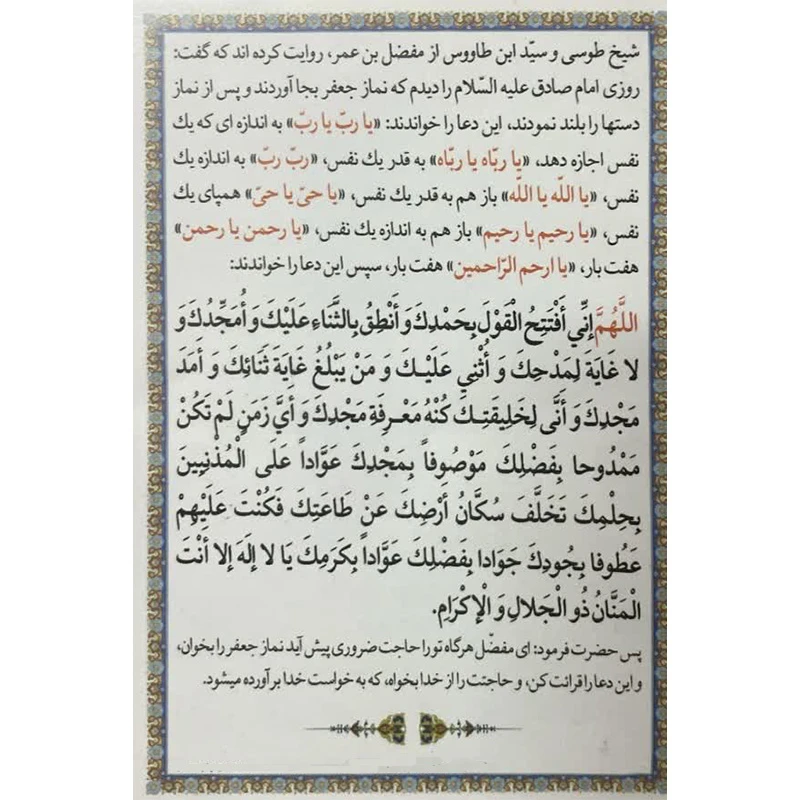 شیخ طوسی و سیّد ابن طاووس از مفضل بن عمر، روایت کرده اند که گفت:
روزی امام صادق علیه السّلام را دیدم که نماز جعفر بجا آوردند و پس از نماز
دستها را بلند نمودند، این دعا را خواندند: «یا ربّ یا ربّ» به اندازه ای که یك
نفس اجازه دهد، «یا ربّاه یا ربّاه» به قدر یك نفس، «ربّ ربّ» به اندازه یك
نفس، «یا اللّه یا اللّه» باز هم به قدر یك نفس، «یا حیّ یا حیّ» همپای یك
نفس، «یا رحیم یا رحیم» باز هم به اندازه یك نفس، «یا رحمن یا رحمن»
هفت بار، «یا ارحم الرّاحمین» هفت بار، سپس این دعا را خواندند:
اللَّهُمَّ إِنِّي أَفْتَتِحُ الْقَوْلَ بِحَمْدِكَ وَ أَنْطِقُ بِالثَّنَاءِ عَلَيْكَ وَ أُمَجِّدُكَ وَ
لا غَايَةَ لِمَدْحِكَ وَ أُثْنِي عَلَيْكَ وَ مَنْ يَبْلُغُ غَايَةَ ثَنَائِكَ وَ أَمَدَ
مَجْدِكَ وَ أَنَّى لِخَلِيقَتِكَ كُنْهُ مَعْرِفَةِ مَجْدِكَ وَ أَيَّ زَمَنٍ لَمْ تَكُنْ
مَمْدُوحا بِفَضْلِكَ مَوْصُوفاً بِمَجْدِكَ عَوَّاداً عَلَى الْمُذْنِبِينَ
بِحِلْمِكَ تَخَلَّفَ سُكَّانُ أَرْضِكَ عَنْ طَاعَتِكَ فَكُنْتَ عَلَيْهِمْ
عَطُوفا بِجُودِكَ جَوَادا بِفَضْلِكَ عَوَّاداً بِكَرَمِكَ يَا لا إِلَهَ إلا أَنْتَ
الْمَنَّانُ ذُو الْجَلالِ وَ الْإِكْرَامِ.
پس حضرت فرمود: ای مفضّل هرگاه تو را حاجت ضروری پیش آید نماز جعفر را بخوان،
و این دعا را قرائت کن، و حاجتت را از خدا بخواه، که به خواست خدا بر آورده میشود.